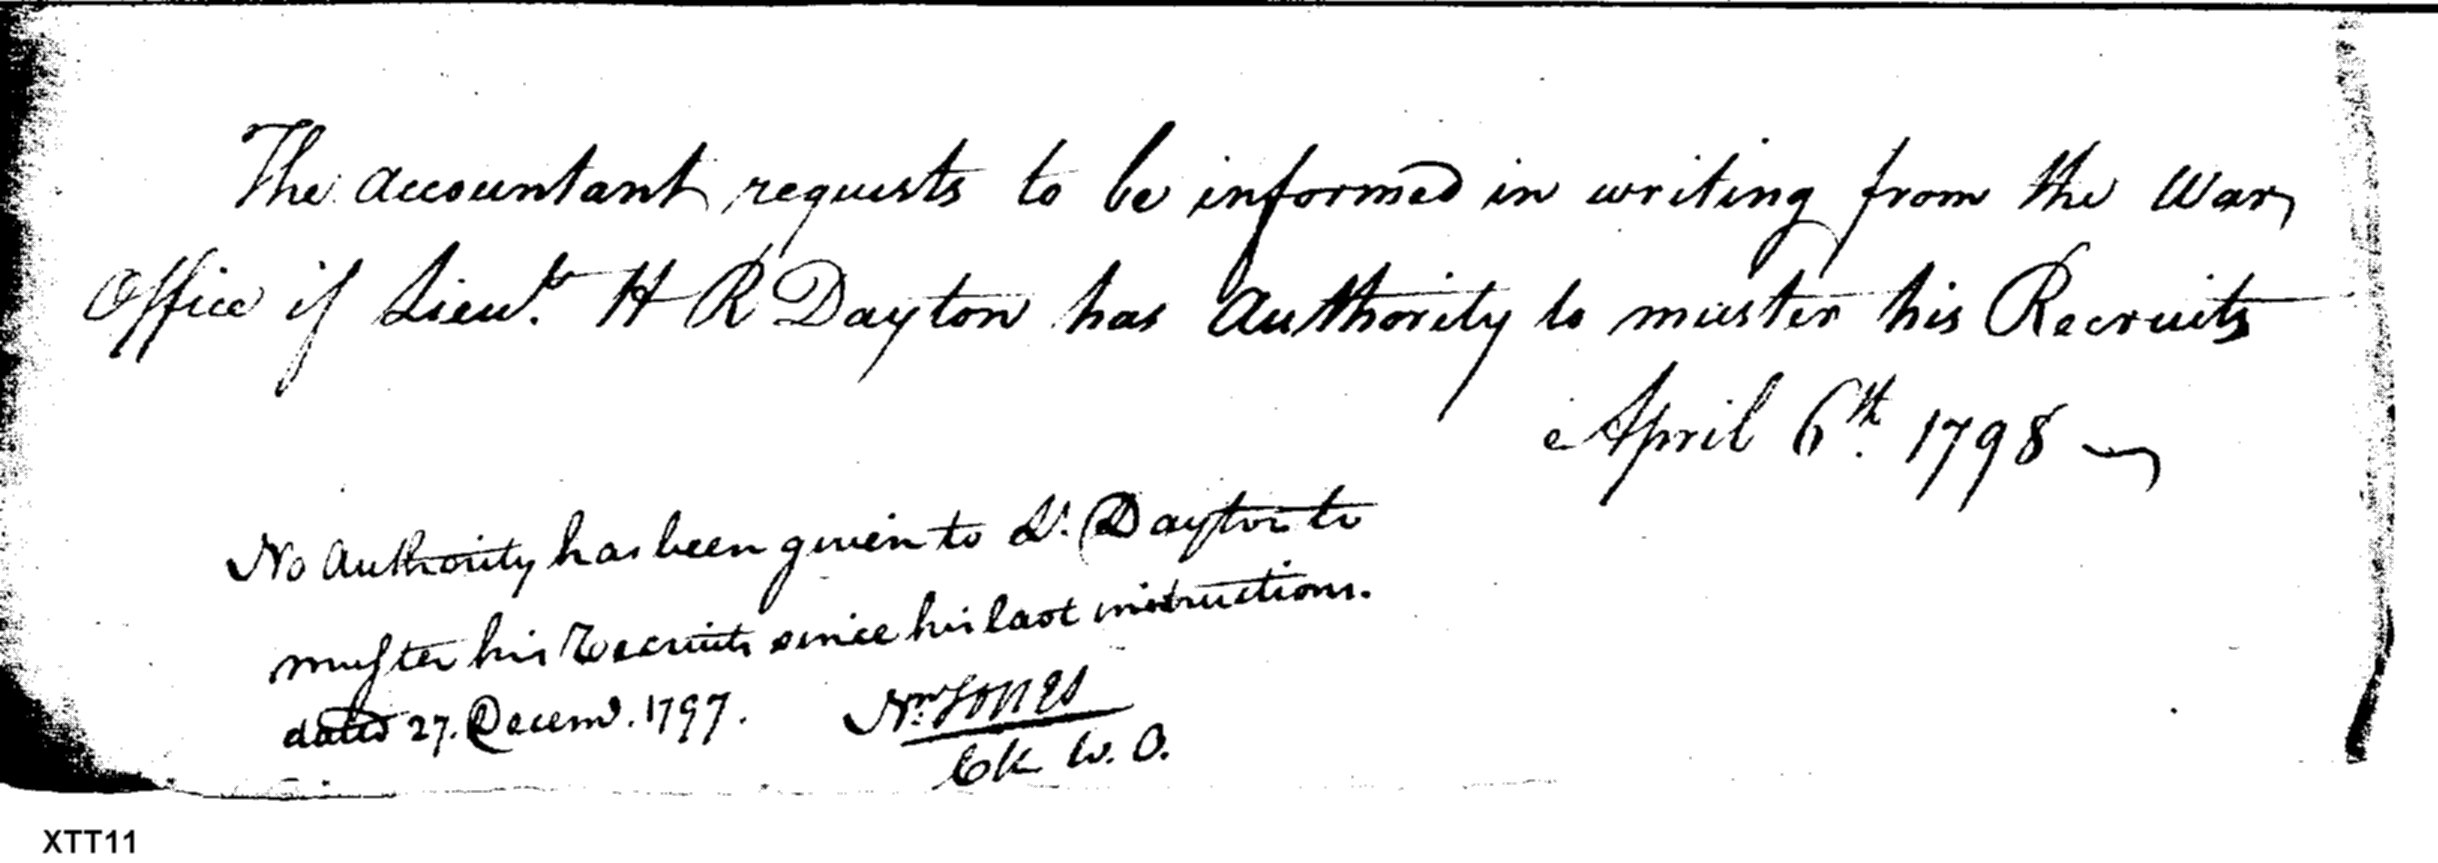 The accountant requests to be informed in writing from the War
Office if Lieut. H R Dayton has Authority to muster his Recruits
April 6th. 1798
No Authority has been given to Lt. Dayton to
muster his Recruits since his last instructions.
dated 27. Decemr. 1797. Nm: Jones
Ck W. O.
XTT11